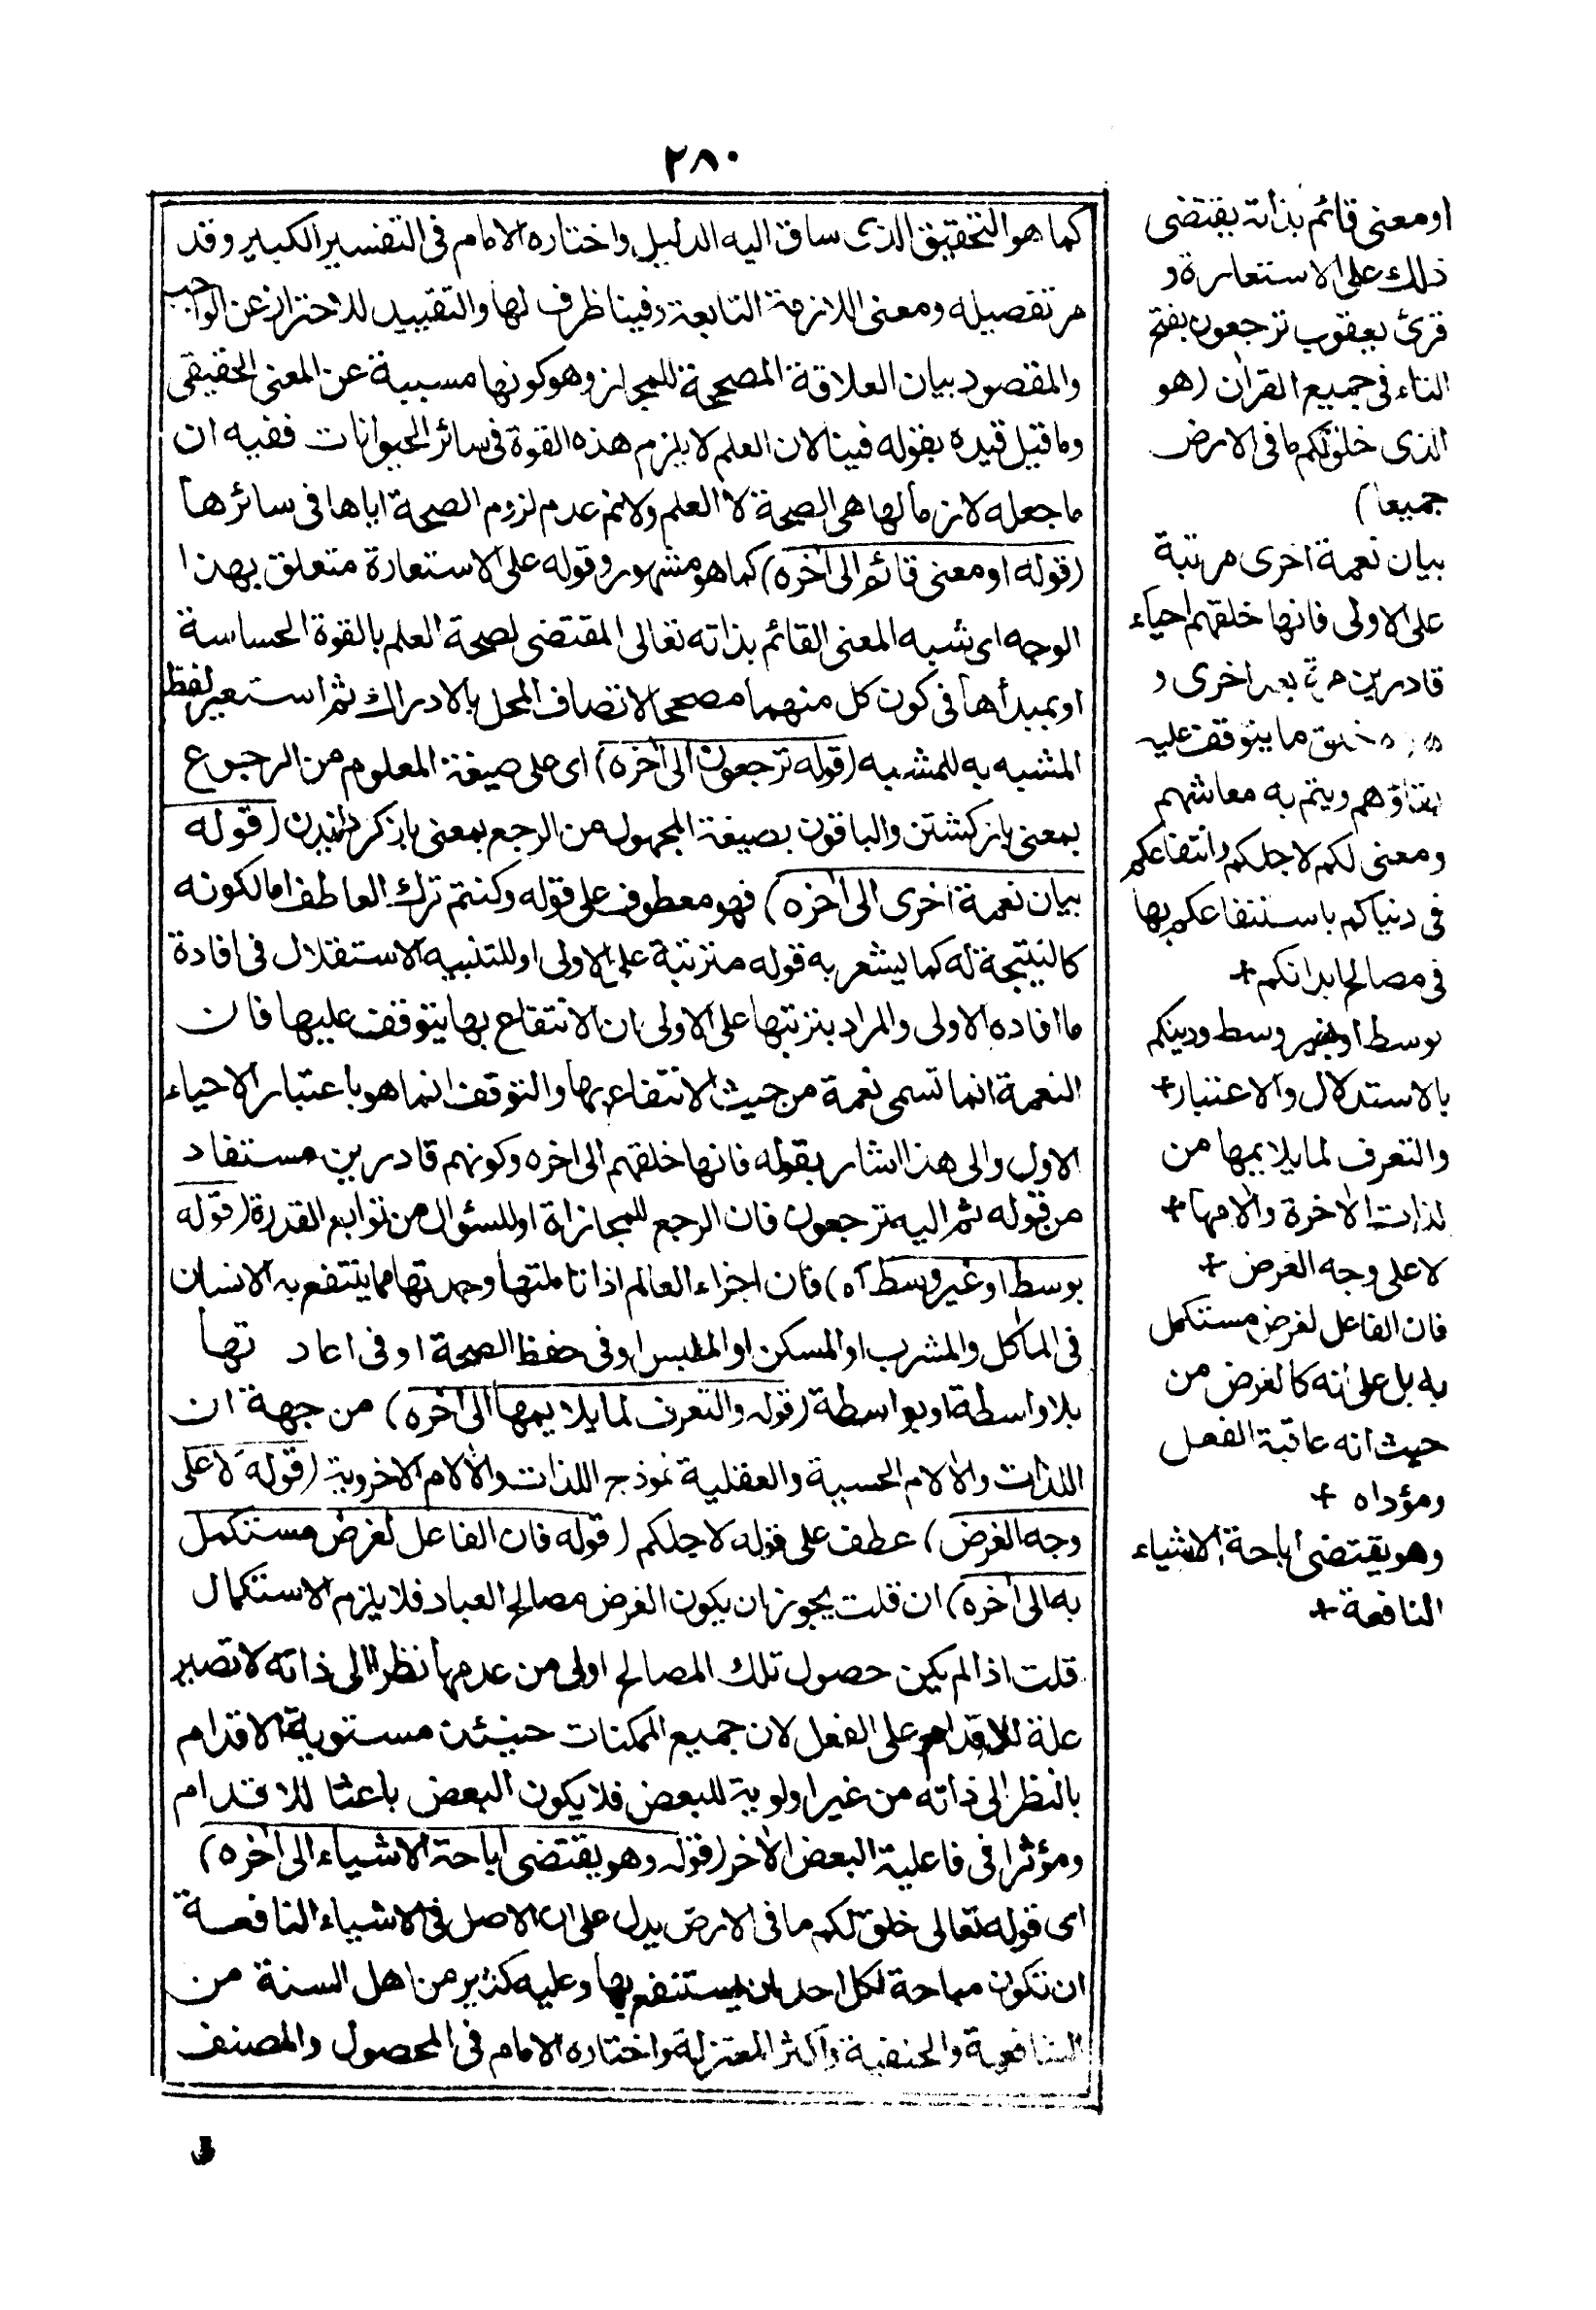 ٢٨٠
كما هو التحقيق الذى ساق اليه الدليل واختاره الامام فى التفسير الكبير وقد
مر تفصيله ومعنى اللازمة التابعة وفينا ظرف لها والتقييد للاحتراز عن الواجب
والمقصود بيان العلاقة المصححة للمجاز وهو كونها مسببة عن المعنى الحقيقى
وما قيل قيده بقوله فينا لان العلم لا يلزم هذه القوة فى سائر الحيوانات ففيه ان
ما جعله لازما لها هى الصحة لا العلم ولانم عدم لزوم الصحة اياها فى سائرها
(قوله او معنى قائم الى اٰخره) كما هو مشهور وقوله على الاستعارة متعلق بهذا
الوجه اى شبه المعنى القائم بذاته تعالى المقتضى لصحة العلم بالقوة الحساسة
او بمبدأها فى كون كل منهما مصححا لاتصاف المحل بالادراك ثم استعير لفظ
المشبه به للمشبه (قوله ترجعون الى اٰخره) اى على صيغة المعلوم من الرجوع
بمعنى بازكشتن والباقون بصيغة المجهول من الرجع بمعنى بازكردانيدن (قوله
بيان نعمة اخرى الى اٰخره) فهو معطوف على قوله وكنتم ترك العاطف اما لكونه
كالنتيجة له كما يشعر به قوله مترتبة على الاولى او للتنبيه الاستقلال فى افادة
ما افاده الاولى والمراد بترتبها على الاولى ان الانتفاع بها يتوقف عليها فان
النعمة انما تسمى نعمة من حيث الانتفاع بها والتوقف انما هو باعتبار الاحياء
الاول والى هذا اشار بقوله فانها خلقهم الى اخره وكونهم قادرين مستفاد
من قوله ثم اليه ترجعون فان الرجع للمجازاة او للسئوال من توابع القدرة (قوله
بوسط او غير وسط آه) فان اجزاء العالم اذا تاملتها وجدتها مما ينتفع به الانسان
فى الماكل والمشرب او المسكن او الملبس او فى حفظ الصحة او فى اعادتها
بلا واسطة او بواسطة (قوله والتعرف لما يلايمها الى اٰخره) من جهة ان
اللذات والاٰلام الحسية والعقلية نموذج اللذات والاٰلام الاخروية (قوله لا على
وجه الغرض) عطف على قوله لاجلكم (قوله فان الفاعل لغرض مستكمل
به الى اٰخره) ان قلت يجوز ان يكون الغرض مصالح العباد فلا يلزم الاستكمال
قلت اذا لم يكن حصول تلك المصالح اولى من عدمها نظرا الى ذاته لا تصير
علة للاقدام على الفعل لان جميع الممكنات حينئذ مستوية الاقدام
بالنظر الى ذاته من غير اولوية للبعض فلا يكون البعض باعثا للاقدام
ومؤثرا فى فاعلية البعض الاٰخر (قوله وهو يقتضى اباحة الاشياء الى اٰخره)
اى قوله تعالى خلق لكم ما فى الارض يدل على ان الاصل فى الاشياء النافعة
ان تكون مباحة لكل احد ان يستنفع بها وعليه كثير من اهل السنة من
الشافعية والحنفية واكثر المعتزلة واختاره الامام فى المحصول والمصنف
او معنى قائم بذاته يقتضى
ذلك على الاستعارة و
قرئ يعقوب ترجعون بفتح
التاء فى جميع القراٰن (هو
الذى خلق لكم ما فى الارض
جميعا)
بيان نعمة اخرى مرتبة
على الاولى فانها خلقهم احياء
قادرين مرة بعد اخرى و
هذه خلق ما يتوقف عليه
بقاؤهم ويتم به معاشهم
ومعنى لكم لاجلكم وانتفاعكم
فى دنياكم باستنفاعكم بها
فى مصالح ابدانكم +
بوسط او بغير وسط ودينكم
بالاستدلال والاعتبار +
والتعرف لما يلايمها من
لذات الاٰخرة والامها +
لا على وجه الغرض +
فان الفاعل لغرض مستكمل
به بل على انه كالغرض من
حيث انه عاقبة الفعل
ومؤداه +
وهو يقتضى اباحة الاشياء
النافعة +